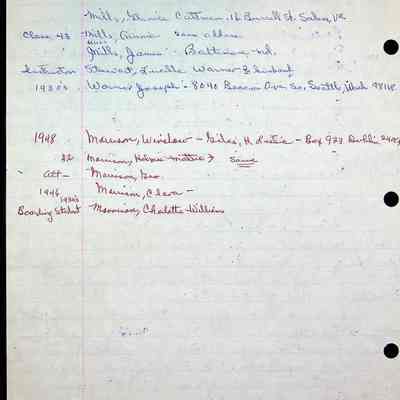 Mills, Cattman - 16 Burrell St. Salem, Va
Class 43 Mills, Annie same address
Mills, James Baltimore, Md.
Instructor Stewart, Lucille Warner & husband
1930s Warner Joseph - 8040 Beacon Ave So, Seattle, Wash 98118
1948 Morrison, Winslow - Giles, H - Box 923 Dublin
Morrison, Mattie } Same
att - Morrison, Geo.
1946 Morrison, Clara -
1930's
Boarding Student Morrison, Charlotte Williams